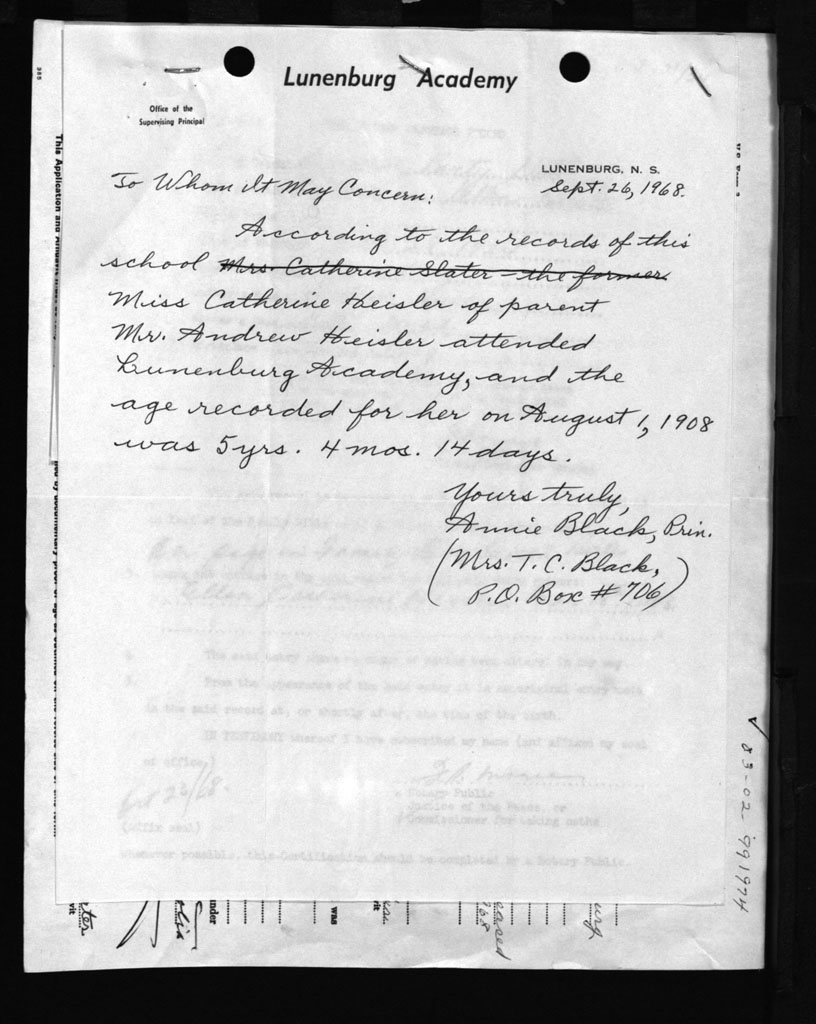 Lunenburg Academy
Office of the
Supervising Principal
LUNENBURG, N. S.
Sept. 26, 1968.
To Whom It May Concern:
According to the records of this
school Mrs. Catherine Slater - the former
Miss Catherine Heisler of parent
Mr. Andrew Heisler attended
Lunenburg Academy, and the
age recorded for her on August 1, 1908
was 5 yrs. 4 mos. 14 days.
Yours truly,
Annie Black, Prin.
(Mrs. T. C. Black,
P.O. Box # 706)
4. The said entry shows no signs of having been altered in any way.
5. From the appearance of the said entry it is an original entry made
in the said record at, or shortly after, the time of the birth.
IN TESTIMONY whereof I have subscribed my name (and affixed my seal
of office)
Notary Public
Justice of the Peace, or
Commissioner for taking oaths
(affix seal)
Whenever possible, this Certification should be completed by a Notary Public.
83-02-991974
This Application and
nder
was
rit